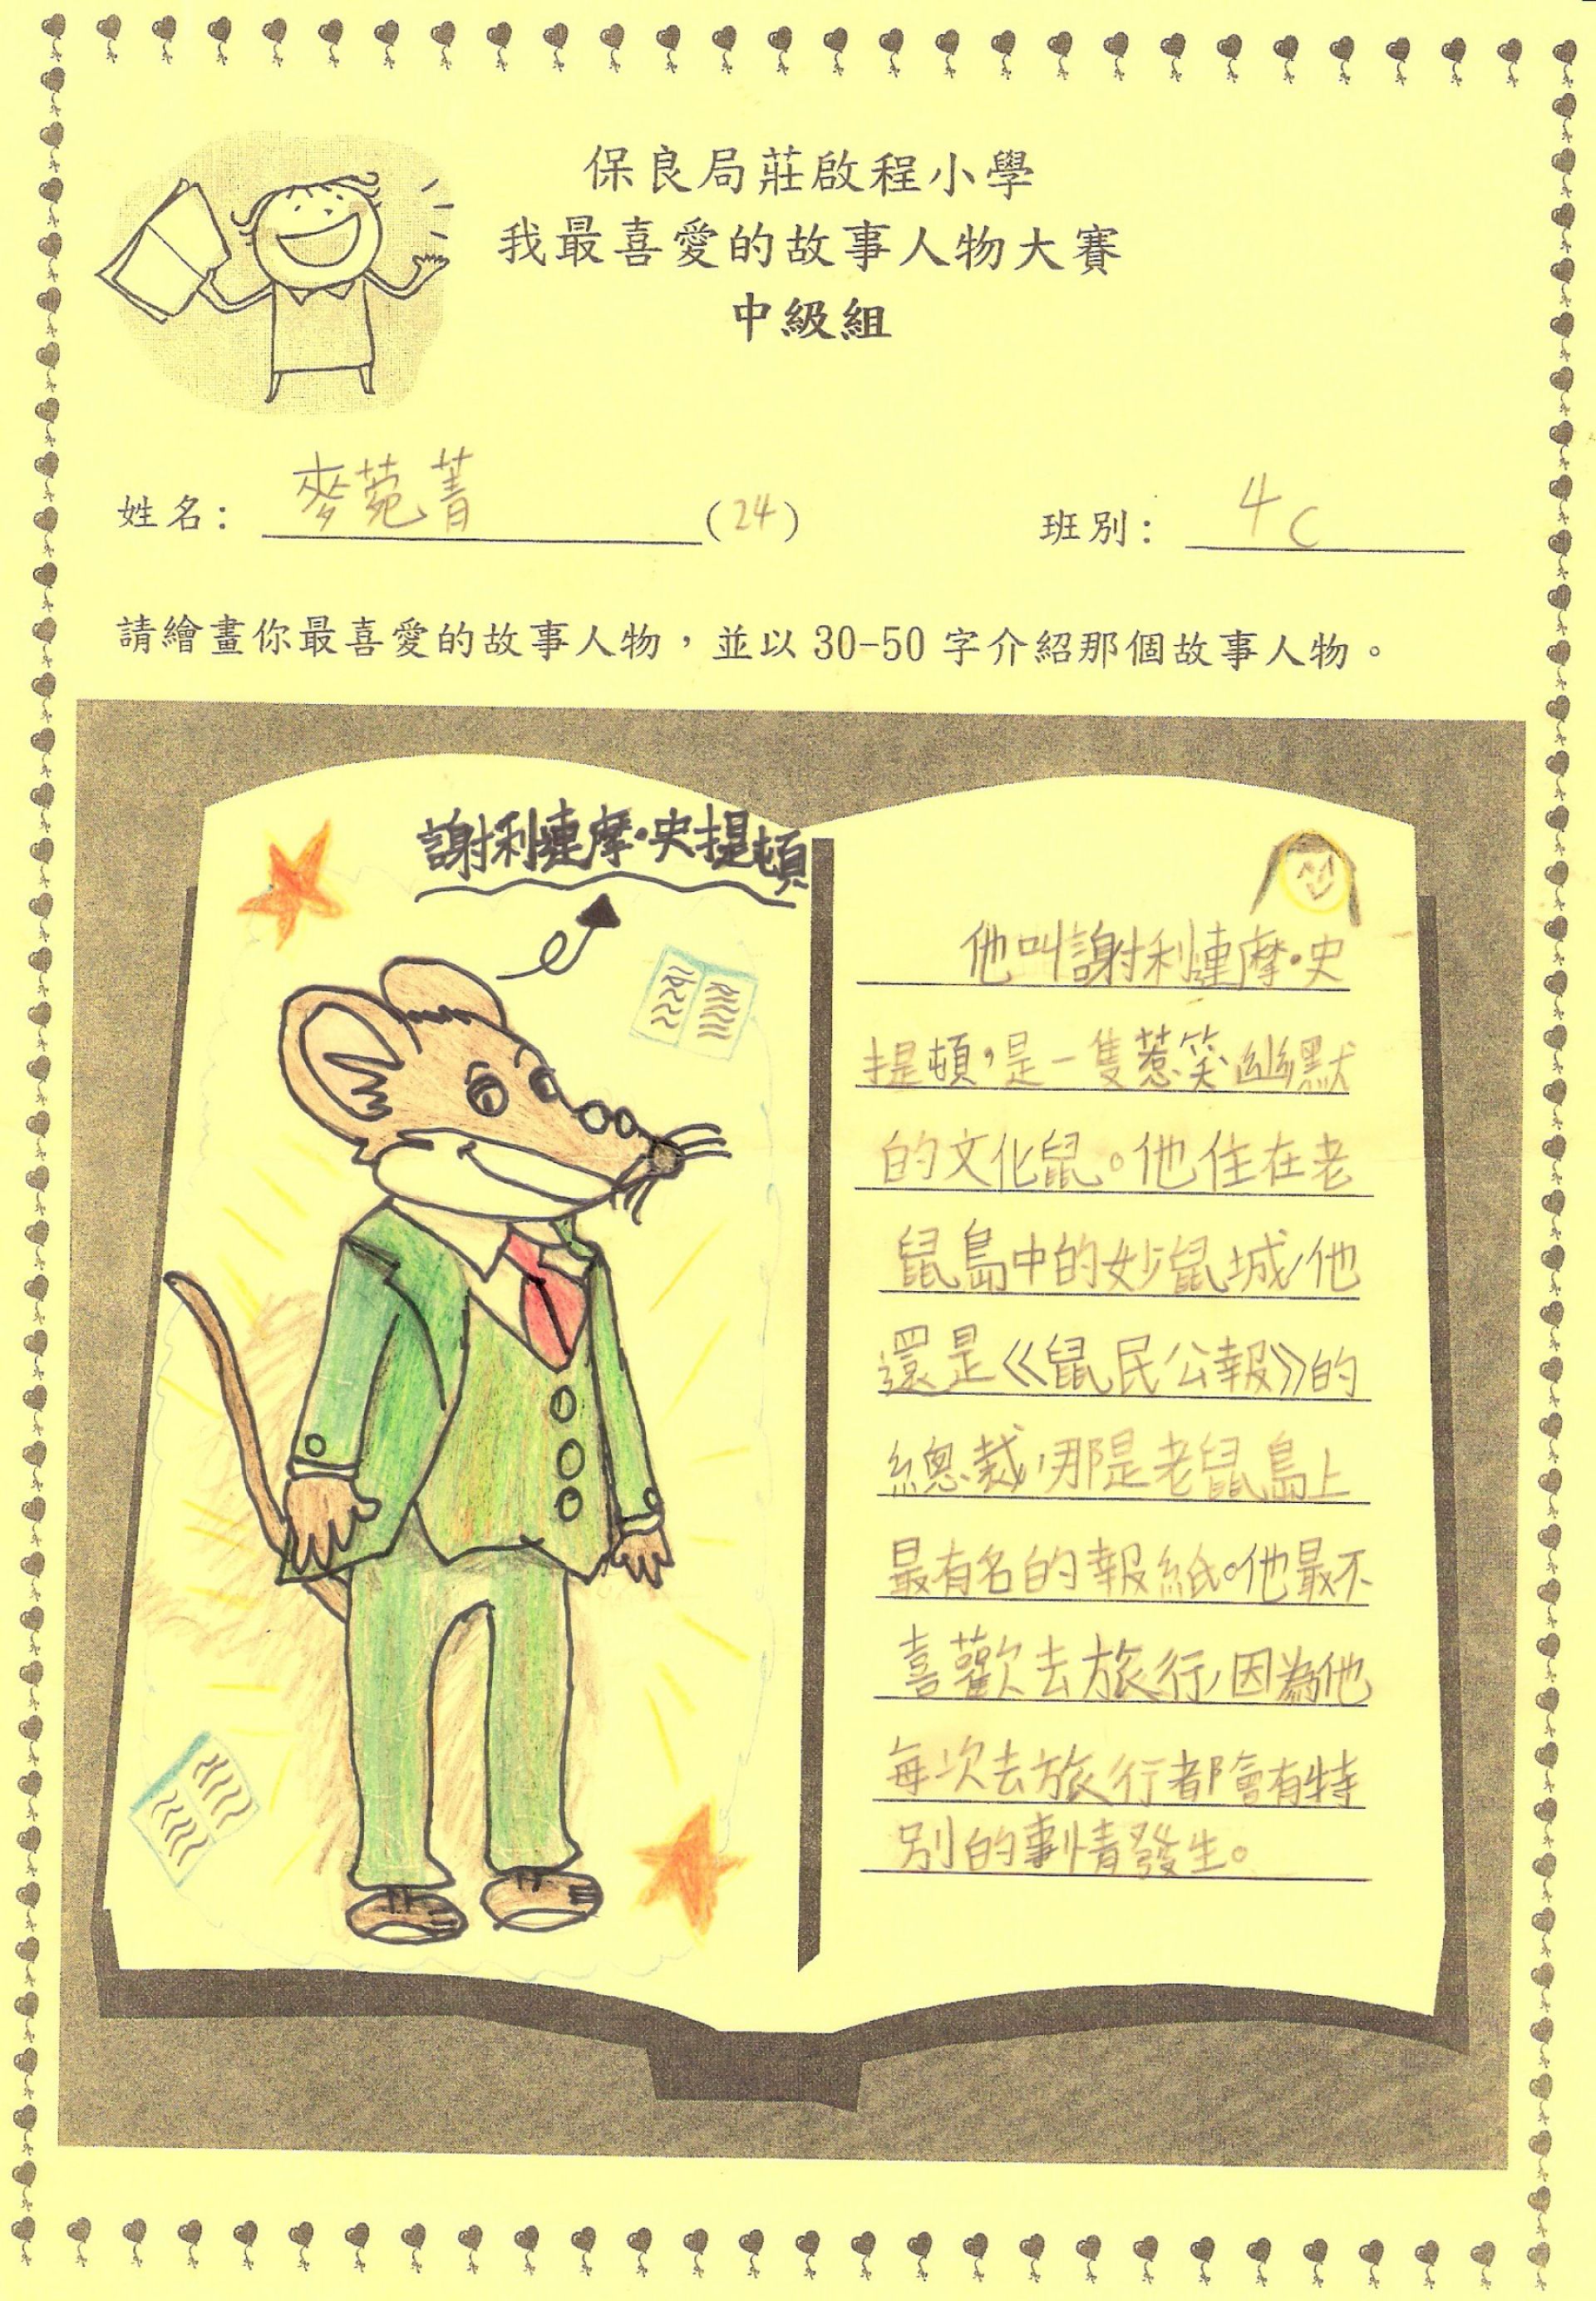 保良局莊啟程小學
我最喜愛的故事人物大賽
中級組
姓名: 麥菀菁 (24) 班別: 4C
請繪畫你最喜愛的故事人物，並以 30-50 字介紹那個故事人物。
謝利連摩·史提頓
他叫謝利連摩·史
提頓，是一隻惹笑幽默
的文化鼠。他住在老
鼠島中的妙鼠城，他
還是《鼠民公報》的
總裁，那是老鼠島上
最有名的報紙。他最不
喜歡去旅行，因為他
每次去旅行都會有特
別的事情發生。